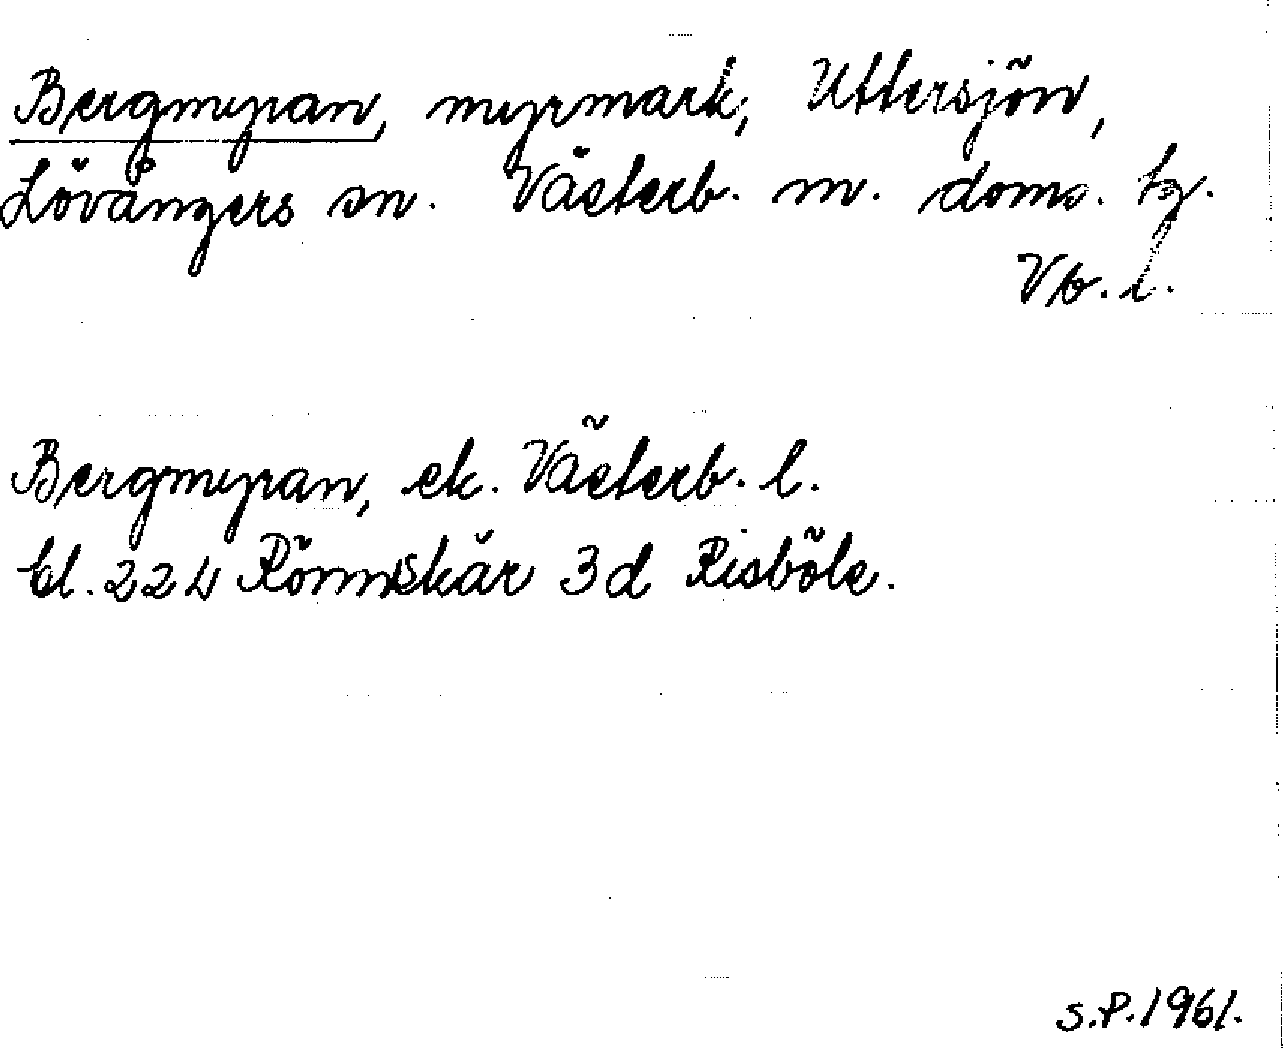 Bergmyran, myrmark, Uttersjön,
Lövångers sn. Västerb. m. doms. tg.
Vb. l.
Bergmyran, ek. Västerb. l.
bl. 22 L Rönnskär 3d Risböle.
S.P. 1961.